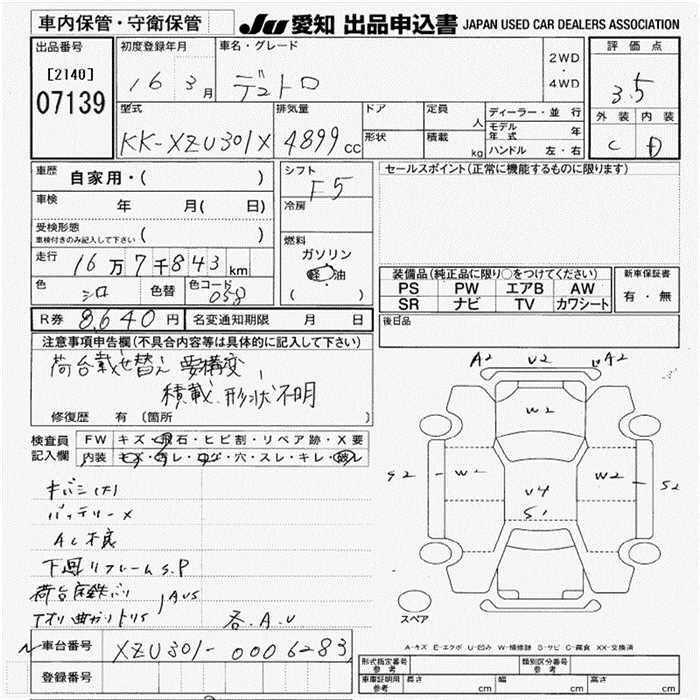 車内保管・守衛保管
JU 愛知 出品申込書 JAPAN USED CAR DEALERS ASSOCIATION
出品番号
[2140]
07139
初度登録年月
16 3月
車名・グレード
デュトロ
2WD
・
4WD
評価点
3.5
外装 内装
C D
型式
KK-XZU301X
排気量
4899cc
ドア
形状
定員 人
積載 kg
ディーラー・並行
モデル年式 年
ハンドル 左・右
車歴 自家用・( )
車検 年 月( 日)
受検形態
車検付きのみ記入して下さい ( )
走行 16万7千843km
色 シロ 色替 色コード 058
R券 8,640円 名変通知期限 月 日
シフト F5
冷房
燃料
ガソリン
軽 油
( )
セールスポイント(正常に機能するものに限ります)
装備品(純正品に限り○をつけてください)
PS PW エアB AW
SR ナビ TV カワシート
新車保証書
有・無
後日品
注意事項申告欄(不具合内容等は具体的に記入して下さい)
荷台載せ替え 要構変
積載、形状不明
修復歴 有 (箇所 )
検査員記入欄
FW キズ・飛石・ヒビ割・リペア跡・X要
内装 キズ・汚レ・コゲ・穴・スレ・キレ・破レ
キバミ(大)
バッテリーX
AC不良
下回りフレームS.P
荷台床鉄バリ
アオリ曲がりトリS
AUS
各.A.U
車台番号 XZU301-0006283
登録番号
A2 U2 A2
W2
S2 W2 U4 W2 S2
S1
スペア
A-キズ E-エクボ U-凹み W-補修跡 S-サビ C-腐食 XX-交換済
形式指定番号 参考
類別区分番号 参考
車庫証明用 参考 長さ cm 幅 cm 高さ cm